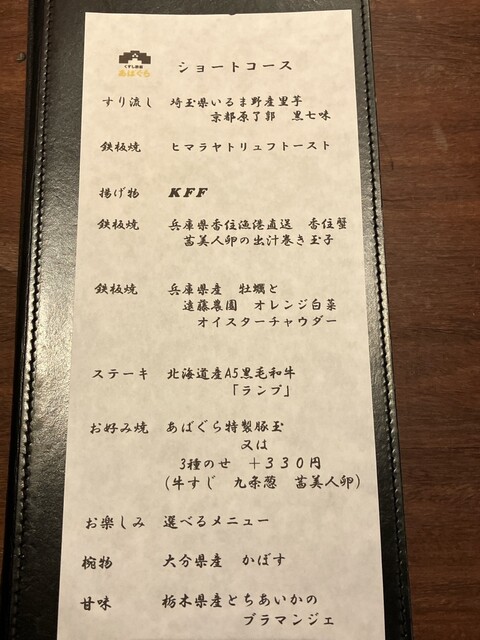 くずし鉄板
あばぐら
ショートコース
すり流し 埼玉県いるま野産里芋
京都原了郭 黒七味
鉄板焼 ヒマラヤトリュフトースト
揚げ物 KFF
鉄板焼 兵庫県香住漁港直送 香住蟹
茜美人卵の出汁巻き玉子
鉄板焼 兵庫県産 牡蠣と
遠藤農園 オレンジ白菜
オイスターチャウダー
ステーキ 北海道産A5黒毛和牛
「ランプ」
お好み焼 あばぐら特製豚玉
又は
3種のせ +330円
(牛すじ 九条葱 茜美人卵)
お楽しみ 選べるメニュー
椀物 大分県産 かぼす
甘味 栃木県産とちあいかの
ブラマンジェ